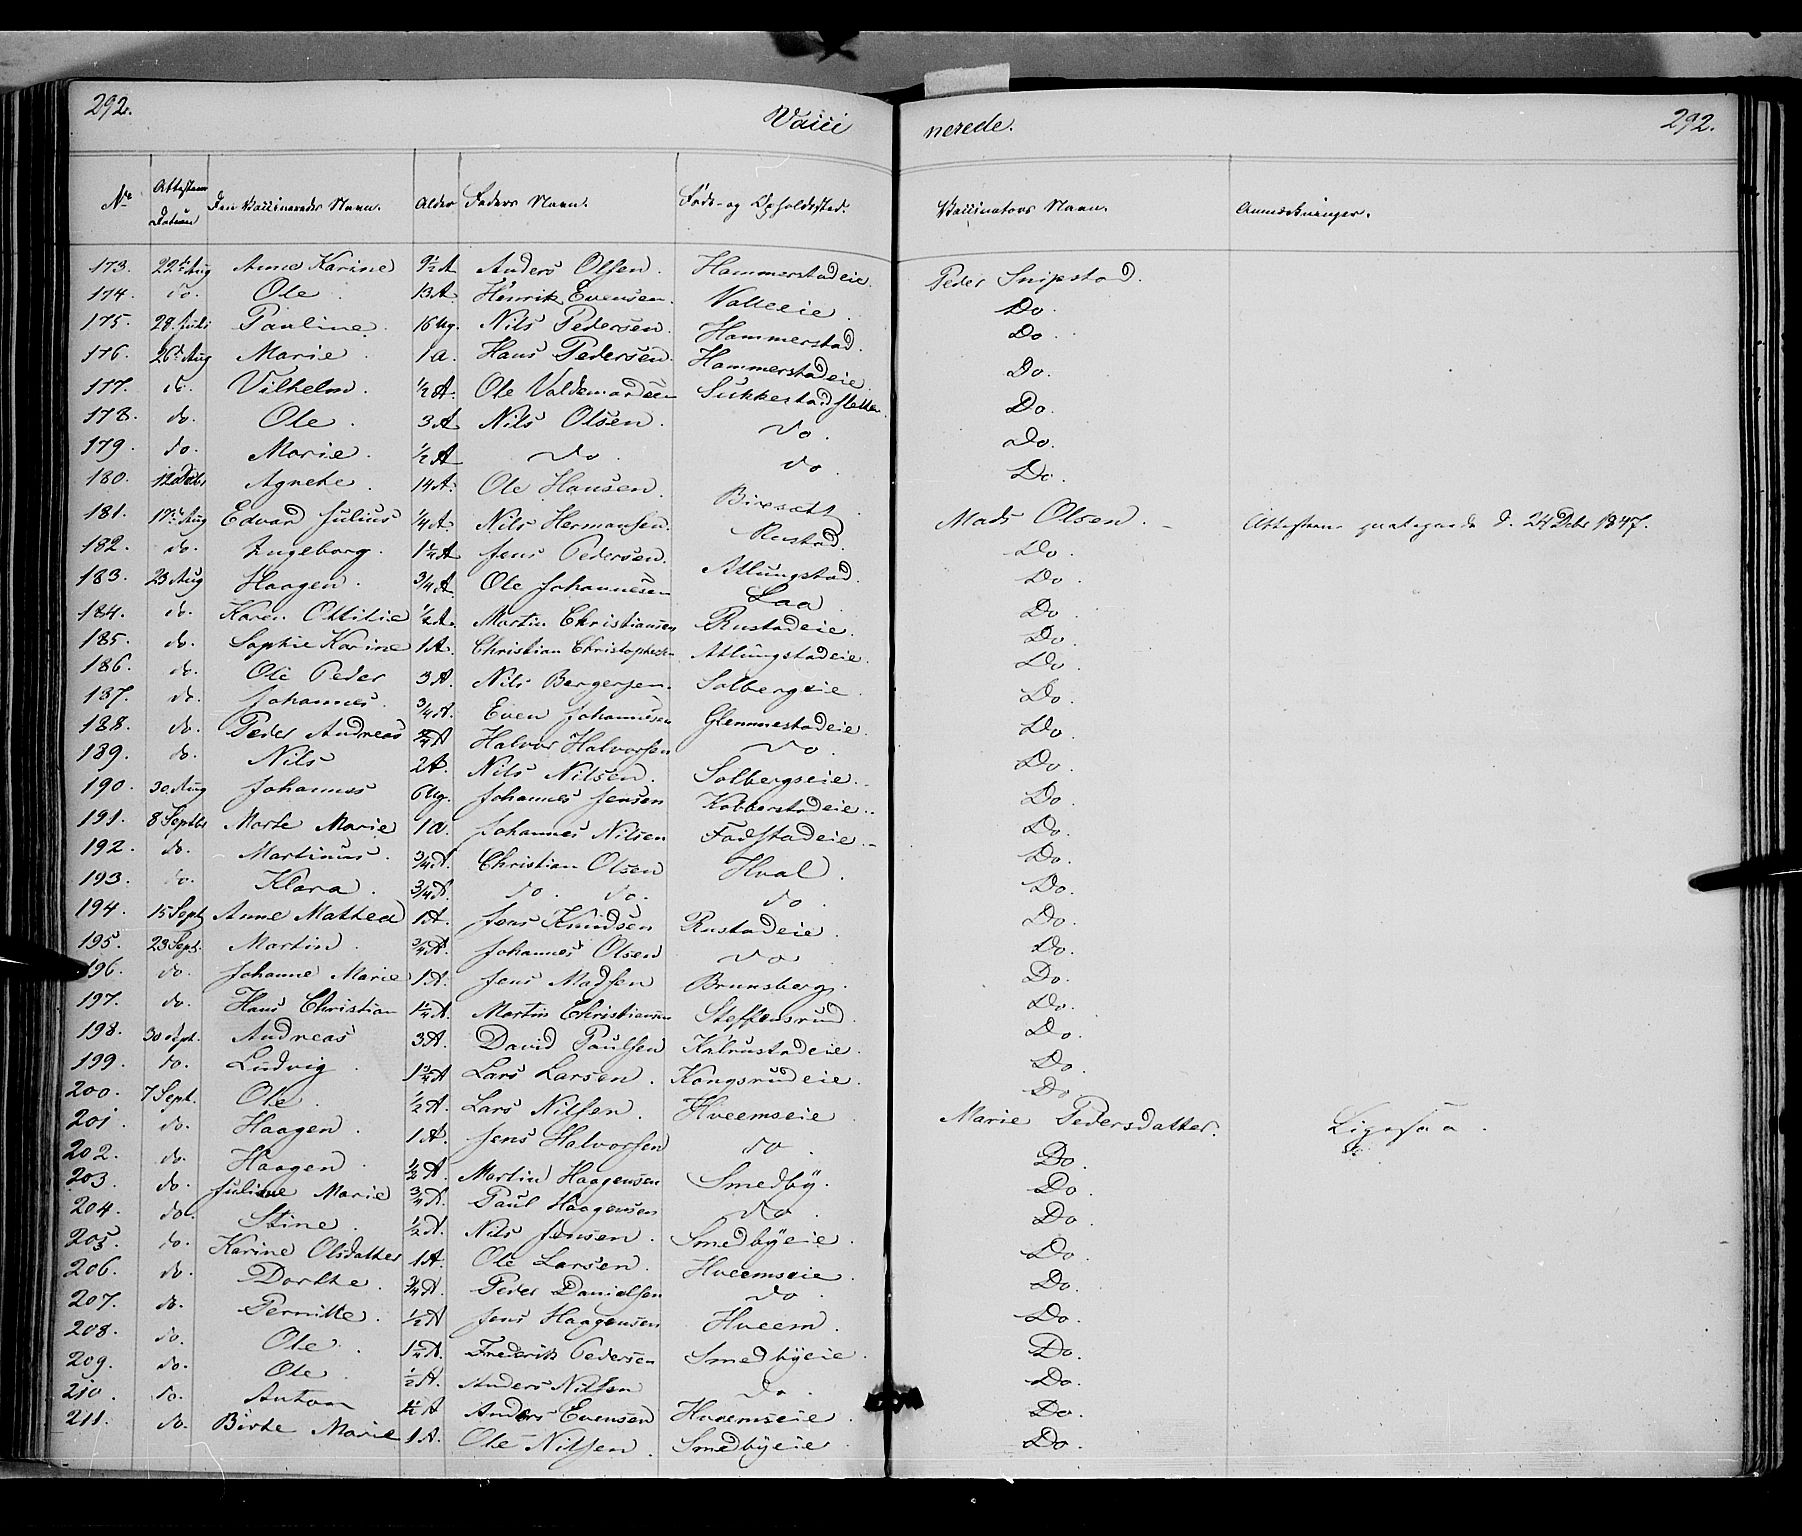 292. Vacci nerede. 292.
No Attestens Datum Den Vaccineredes Navn. Alder Faders Navn. Føde- og Opholdssted. Vaccinators Navn. Anmærkninger.
173. 22de Aug Anne Karine 9½ A Anders Olsen. Hammerstadeie. Peder Snipstad.
174. do. Ole. 13 A. Henrik Evensen. Valleeie. Do.
175. 28 Pauline. 16 Ug. Nils Pedersen. Hammerstad. Do.
176. 26de Aug Marie. 1 a. Hans Pedersen. Hammerstadeie. Do.
177. do. Vilhelm. ½ A. Ole Valdemarsen Sukkestad Do.
178. do. Ole. 3 A Nils Olsen. do. Do.
179. do. Marie. ½ A do. do. Do.
180. 12 Agnethe. 14 A. Ole Hansen. Biresætt.
181. 17de Aug Edvard Julius ¼ A Nils Hermansen. Rustad. Mads Olsen. Attestens paategnede d. 24 Dbr 1847.
182. do. Ingeborg. 1¼ A Jens Pedersen. Atlungstad. Do.
183. 23 Aug Haagen. ¾ A. Ole Johannesen Laa. Do.
184. do. Karen Ottilie ½ A. Martin Christiansen Rustadeie. Do.
185. do. Sophie Karine 1 A. Christian Christophersen Atlungstadeie. Do.
186. do. Ole Peder 3 A. Nils Bergersen. Solbergeie. Do.
187. do. Johannes. ¾ A. Even Johannesen Glemmestadeie. Do.
188. do. Peder Andreas ¾ A Halvor Halvorsen do. Do.
189. do. Nils 2 A. Nils Nilsen. Solbergseie. Do.
190. 30 Aug Johannes 6 Ug. Johannes Jensen Kobberstadeie. Do.
191. 8 Septbr Marte Marie 1 a. Johannes Nilsen Fodstadeie. Do.
192. do. Martinus. ¾ A. Christian Olsen Hval. Do.
193. do. Klara. ¾ A. do. do. do. Do.
194. 15 Sept Anne Mathea 1 A. Jens Knudsen Rustadeie. Do.
195. 23 Sept. Martin. ¾ A. Johannes Olsen do. Do.
196. do. Johanne Marie 1 A. Jens Madsen Brunsberg. Do.
197. do. Hans Christian 1¼ A. Martin Christiansen Steffensrud. Do.
198. 30 Sept. Andreas 3 A. David Paulsen Kalrustadeie. Do.
199. do. Ludvig. 1¾ A Lars Larsen. Kongsrudeie. Do.
200. 7 Sept. Ole. ½ A. Lars Nilsen. Hveemseie. Marie Pedersdatter. Ligesaa.
201. do. Haagen. 1 A. Jens Halvorsen do. Do.
202. do. Haagen. ½ A Martin Haagensen Smedby. Do.
203. do. Juliane Marie ¾ A. Paul Haagensen do. Do.
204. do. Stine. ½ A. Nils Jensen. Smedbyeie. Do.
205. do. Karine Olsdatter 1 A. Ole Larsen. Hveemseie. Do.
206. do. Dorthe. ¾ A. Peder Danielsen do. Do.
207. do. Pernille. ½ A Jens Haagensen Hveem. Do.
208. do. Ole. 1¼ A. Frederik Pedersen Smedbyeie. Do.
209. do. Ole. ½ A. Anders Nilsen do. Do.
210. do. Anton 1½ A Anders Evensen Hveemseie. Do.
211. do. Birte Marie 1 A. Ole Nilsen. Smedbyeie. Do.